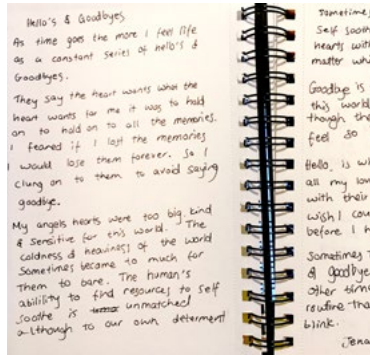 Hello's & Goodbyes
As time goes the more I feel life
as a constant series of hello's &
Goodbyes.
They say the heart wants what the
heart wants for me it was to hold
on to hold on to all the memories.
I feared if I lost the memories
I would lose them forever. So I
clung on to them to avoid saying
goodbye.
My angels hearts were too big, kind
& Sensitive for this world. The
coldness & heaviness of the world
Sometimes became to much for
Them to bare. The human's
abilility to find resources to self
soothe is unmatched
although to our own determent
sometimes
self sooth
hearts with
matter whi
Goodbye is
this world
though the
feel so
Hello, is wh
all my lov
with their
wish I cou
before I h
Sometimes T
& goodbye
other time
routine tha
blink.
Jena